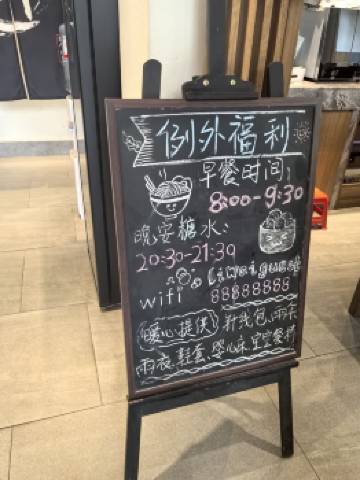 例外福利
早餐时间:
8:00-9:30
晚安糖水:
20:30-21:30
wifi
88888888
暖心提供 针线包、雨伞
雨衣、鞋套、婴儿床、宝宝餐椅